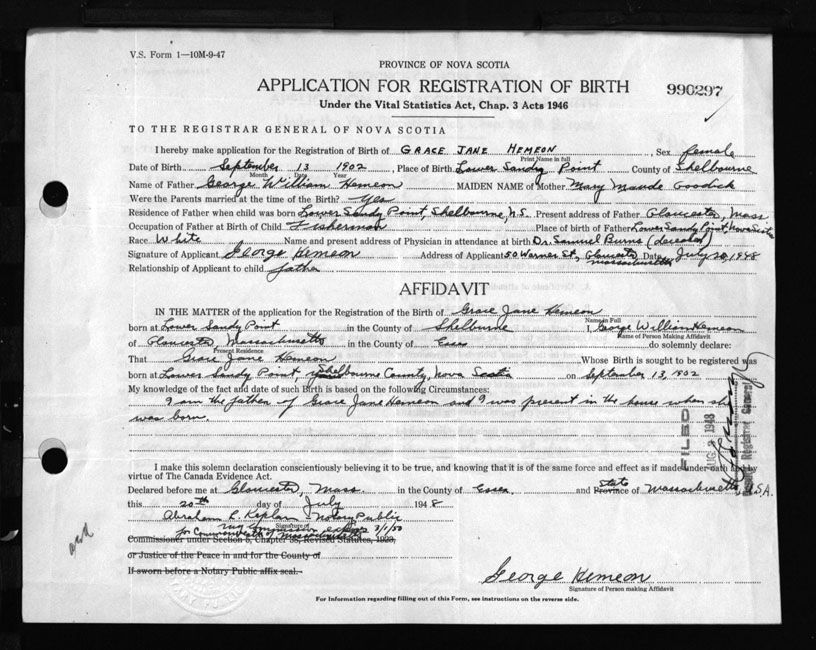 V.S. Form 1—10M-9-47
PROVINCE OF NOVA SCOTIA
APPLICATION FOR REGISTRATION OF BIRTH
990297
Under the Vital Statistics Act, Chap. 3 Acts 1946
TO THE REGISTRAR GENERAL OF NOVA SCOTIA
I hereby make application for the Registration of Birth of GRACE JANE HEMEON, Sex female
Print Name in full
Date of Birth September 13 1902, Place of Birth Lower Sandy Point County of Shelbourne
Month Date Year
Name of Father George William Hemeon MAIDEN NAME of Mother Mary Maude Goodick
Were the Parents married at the time of the Birth? Yes
Residence of Father when child was born Lower Sandy Point, Shelbourne, N.S. Present address of Father Gloucester, Mass
Occupation of Father at Birth of Child Fisherman Place of birth of Father Lower Sandy Point, Nova Scotia
Race White Name and present address of Physician in attendance at birth Dr. Samuel Burns (deceased)
Signature of Applicant George Hemeon Address of Applicant 50 Warner St., Gloucester Massachusetts Date July 20, 1948
Relationship of Applicant to child father
AFFIDAVIT
IN THE MATTER of the application for the Registration of the Birth of Grace Jane Hemeon
Name in Full
born at Lower Sandy Point in the County of Shelburne I, George William Hemeon
Name of Person Making Affidavit
of Gloucester, Massachusetts in the County of Essex do solemnly declare:
Present Residence
That Grace Jane Hemeon Whose Birth is sought to be registered was
born at Lower Sandy Point, Shelbourne County, Nova Scotia on September 13, 1902
My knowledge of the fact and date of such Birth is based on the following Circumstances:
I am the father of Grace Jane Hemeon and I was present in the house when she
was born.
FILED
AUG 1948
Registrar General
I make this solemn declaration conscientiously believing it to be true, and knowing that it is of the same force and effect as if made under oath and by
virtue of The Canada Evidence Act.
Declared before me at Gloucester, Mass. in the County of Essex and Province of State Massachusetts, U.S.A.
this 20th day of July 1948
Abraham E. Kaplan Notary Public
Signature of
my commission expires
for Commonwealth of Massachusetts
Commissioner under Section 6, Chapter 38, Revised Statutes, 1923,
or Justice of the Peace in and for the County of
If sworn before a Notary Public affix seal.
George Hemeon
Signature of Person making Affidavit
For Information regarding filling out of this Form, see instructions on the reverse side.